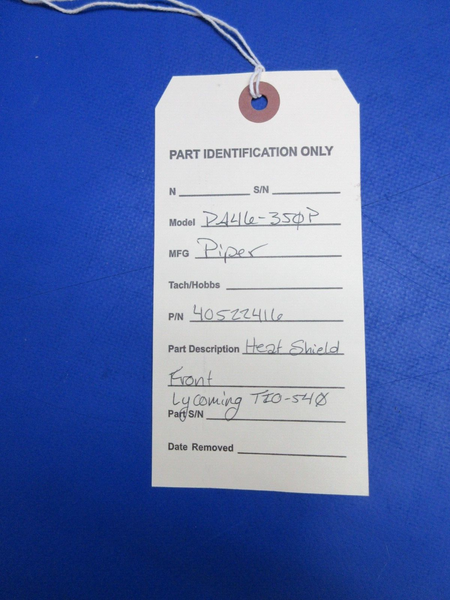 PART IDENTIFICATION ONLY
N S/N
Model PA46-350P
MFG Piper
Tach/Hobbs
P/N 40522416
Part Description Heat Shield
Front
Lycoming TIO-540
Part S/N
Date Removed